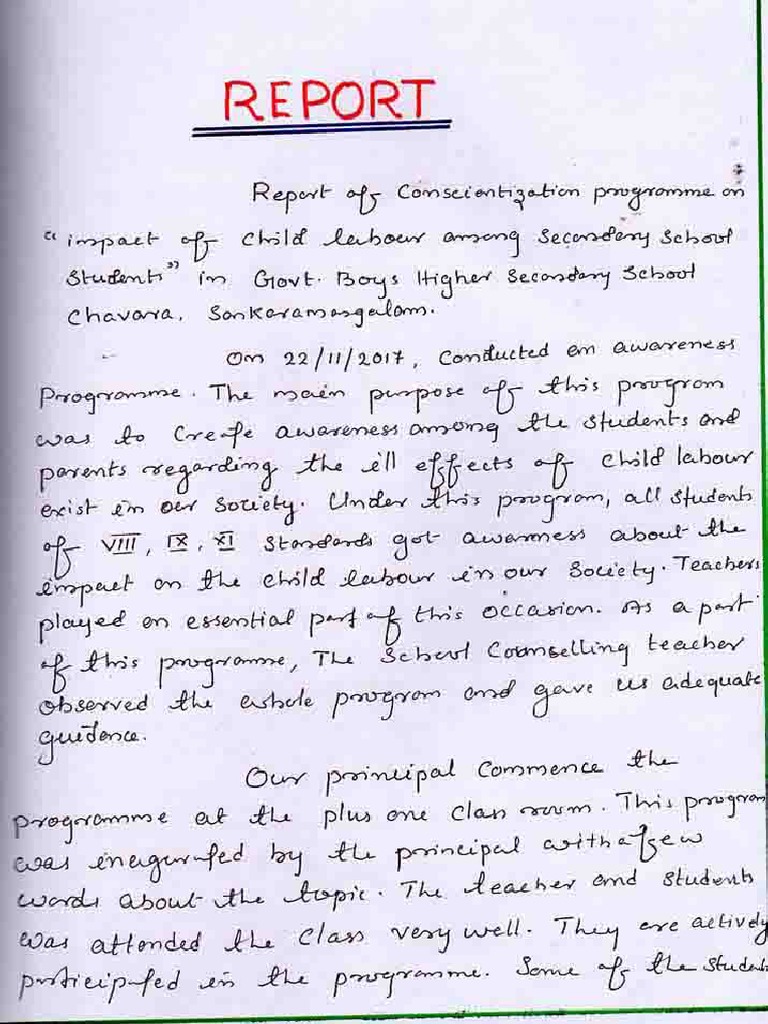 REPORT
Report of Conscientization programme on
"impact of child labour among Secondary School
Students" in Govt. Boys Higher Secondary School
Chavara, Sankaramangalam.
On 22/11/2017, Conducted an awareness
Programme. The main purpose of this program
was to Create awareness among the students and
parents regarding the ill effects of child labour
exist in our Society. Under this program, all students
of VIII, IX, XI Standards got awareness about the
impact on the child labour in our Society. Teachers
played an essential part of this occasion. As a part
of this programme, The School Counselling teacher
observed the whole program and gave us adequate
guidance.
Our principal Commence the
programme at the plus one Class room. This program
was inagurated by the principal with a few
words about the topic. The teacher and students
was attended the Class very well. They are actively
participated in the programme. Some of the Students